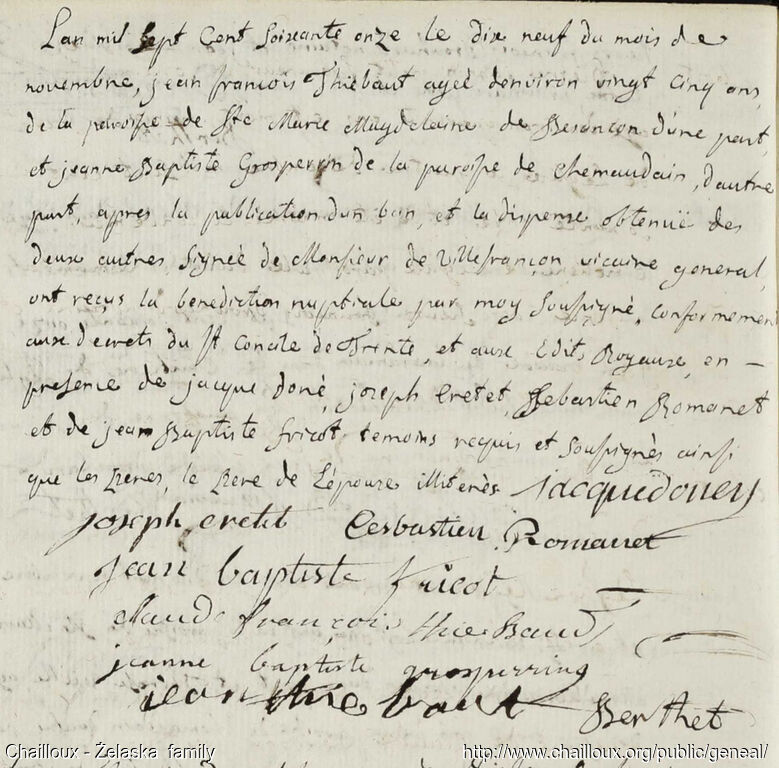 Lan mil sept Cent soixante onze le dix neuf du mois de
novembre, jean francois Thiebaut ageé denviron vingt Cinq ans,
de la paroisse de Ste Marie Magdelaine de Besancon d'une part,
et jeanne Baptiste Grosperrin de la paroisse de chemaudain, d'autre
part, apres la publication dun ban, et la dispense obtenuë des
deux autres signeé de Monsieur de Villefrancon vicaire general,
ont reçus la benediction nuptiale par moy soussigné, conformement
aux decrets du st Concile de Trente, et aux Edits Royaux, en -
presence de jacque doné, joseph Cretet, Sebastien Romanet
et de jean Baptiste fricot temoins requis et soussignés ainsi
que les Peres, le Pere de L'épouse illiterés jacque doney
joseph cretet Cesbastien Romanet
jean baptiste fricot
claud françois thiebaud
jeanne baptiste grosperring
jean thiebaut Berthet
Chailloux - Želaska family http://www.chailloux.org/public/geneal/